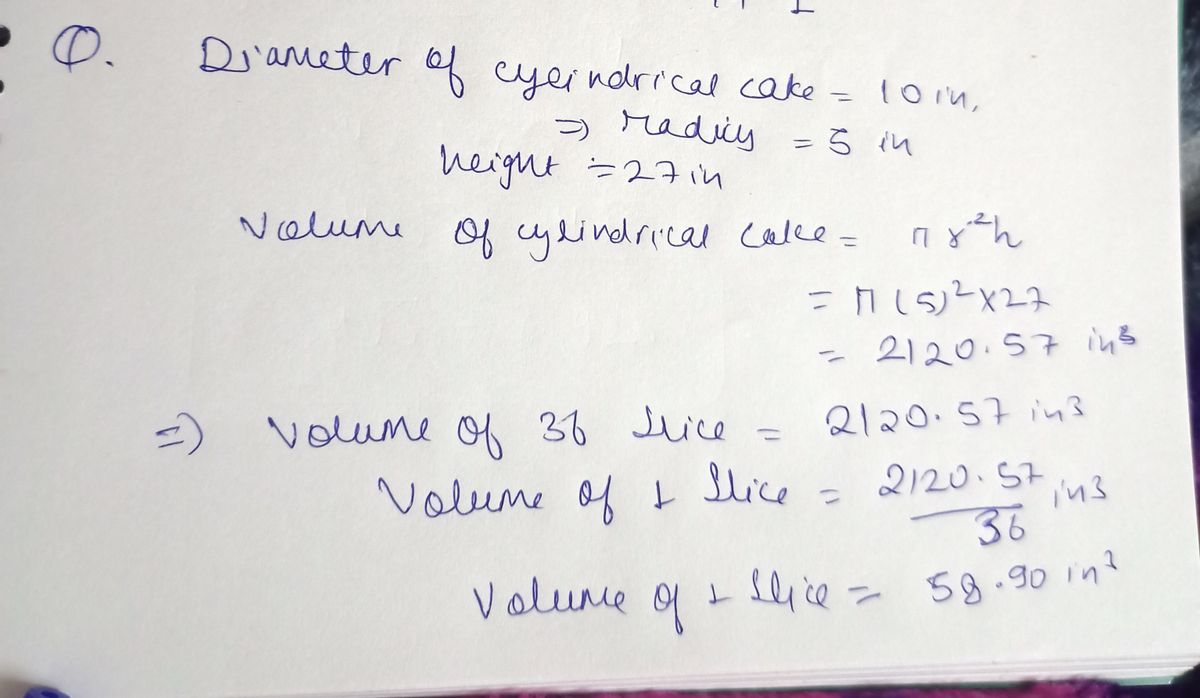 Q. Diameter of cylindrical cake = 10 in,
⇒ radius = 5 in
height = 27 in
Volume of cylindrical cake = πr²h
= π (5)² x 27
= 2120.57 in³
⇒) Volume of 36 Slice = 2120.57 in3
Volume of 1 Slice = 2120.57/36 in3
Volume of 1 Slice = 58.90 in³